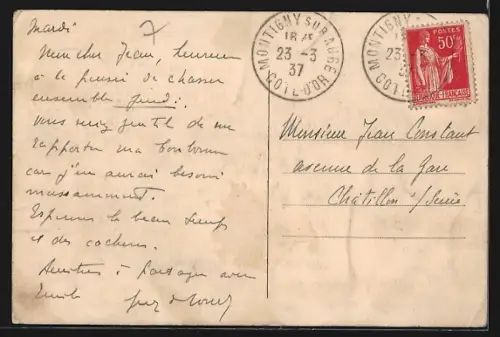 mardi
Mon cher Jean, heureux
à la pensée de chasser
ensemble jeudi.
vous seriez gentil de me
rapporter ma
car j'en aurai besoin
incessamment.
Espérons le beau temps
et des cochons.
Amitiés à partager avec
MONTIGNY SUR AUBE
18
23 - 3
37
COTE-D'OR
MONTIGNY
23
COTE-D
POSTES
50c
FRANÇAISE
Monsieur Jean Constant
avenue de la Gare
Châtillon s/Seine